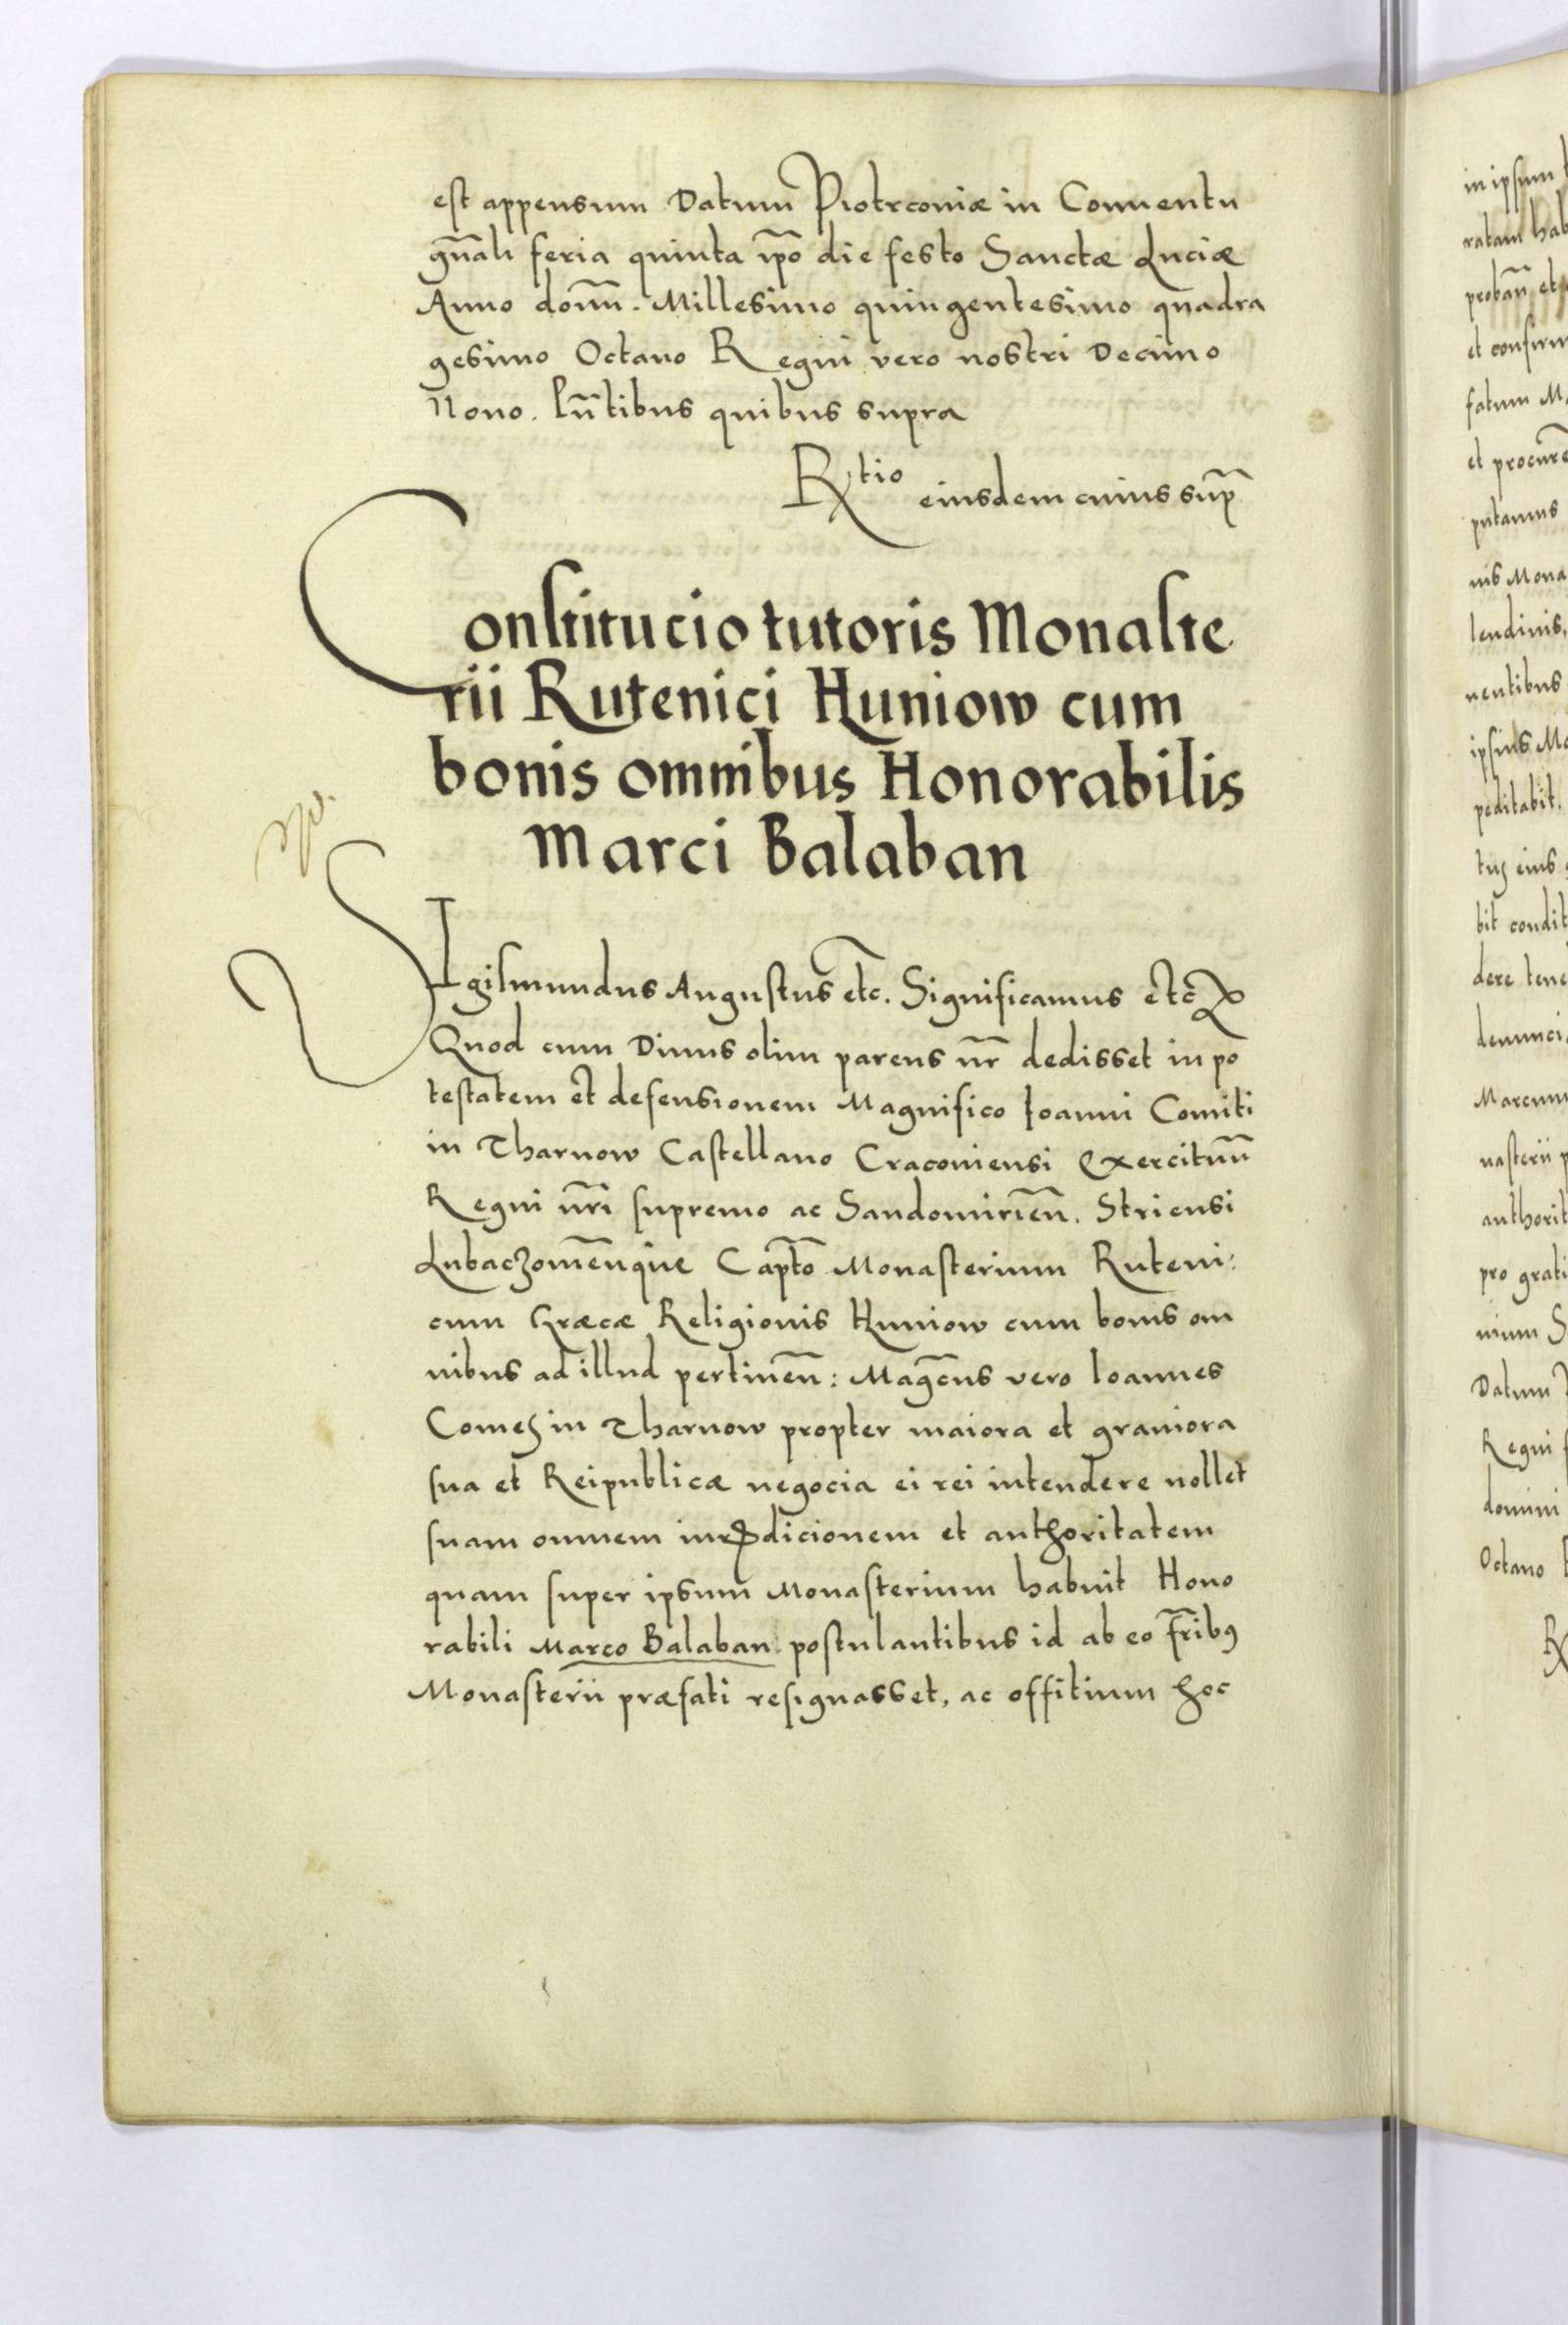 est appensum Datum Piotrcoviæ in Conventu
gn̄ali feria quinta ip̄o die festo Sanctæ Luciæ
Anno dom̄. Millesimo quingentesimo quadra
gesimo Octavo Regni vero nostri Decimo
Nono. Pn̄tibus quibus supra
R̃tio eiusdem cuius sup̃
Constitucio tutoris Monaste
rii Rutenici Huniow cum
bonis omnibus Honorabilis
Marci Balaban
SIgismundus Augustus etc. Significamus etc
Quod cum Divus olim parens nr̄ dedisset in po
testatem et defensionem Magnifico Ioanni Comiti
in Tharnow Castellano Cracoviensi Exercituū
Regni nr̄i supremo ac Sandomirien̄. Striensi
Lubaczovien̄que Capt̄o Monasterium Ruteni:
cum Græcæ Religionis Huniow cum bonis om
nibus ad illud pertinen̄: Magc̄us vero Ioannes
Comes in Tharnow propter maiora et graviora
sua et Reipublicæ negocia ei rei intendere nollet
suam omnem iurꝭdicionem et authoritatem
quam super ipsum Monasterium habuit Hono
rabili Marco Balaban postulantibus id ab eo fr̄ibꝰ
Monasterii præfati resignasset, ac offitium hoc
in ipsum
ratam hab
proban̄ et
et confirm
fatum M
et procur
putamus
nis Mona
lendinis,
nentibus
ipsius Mo
peditabit.
tus eius
bit condit
dere tene
denunci
Marcum
nasterii p
authorit
pro grati
nium S
Datum
Regni
domini
Octavo
R